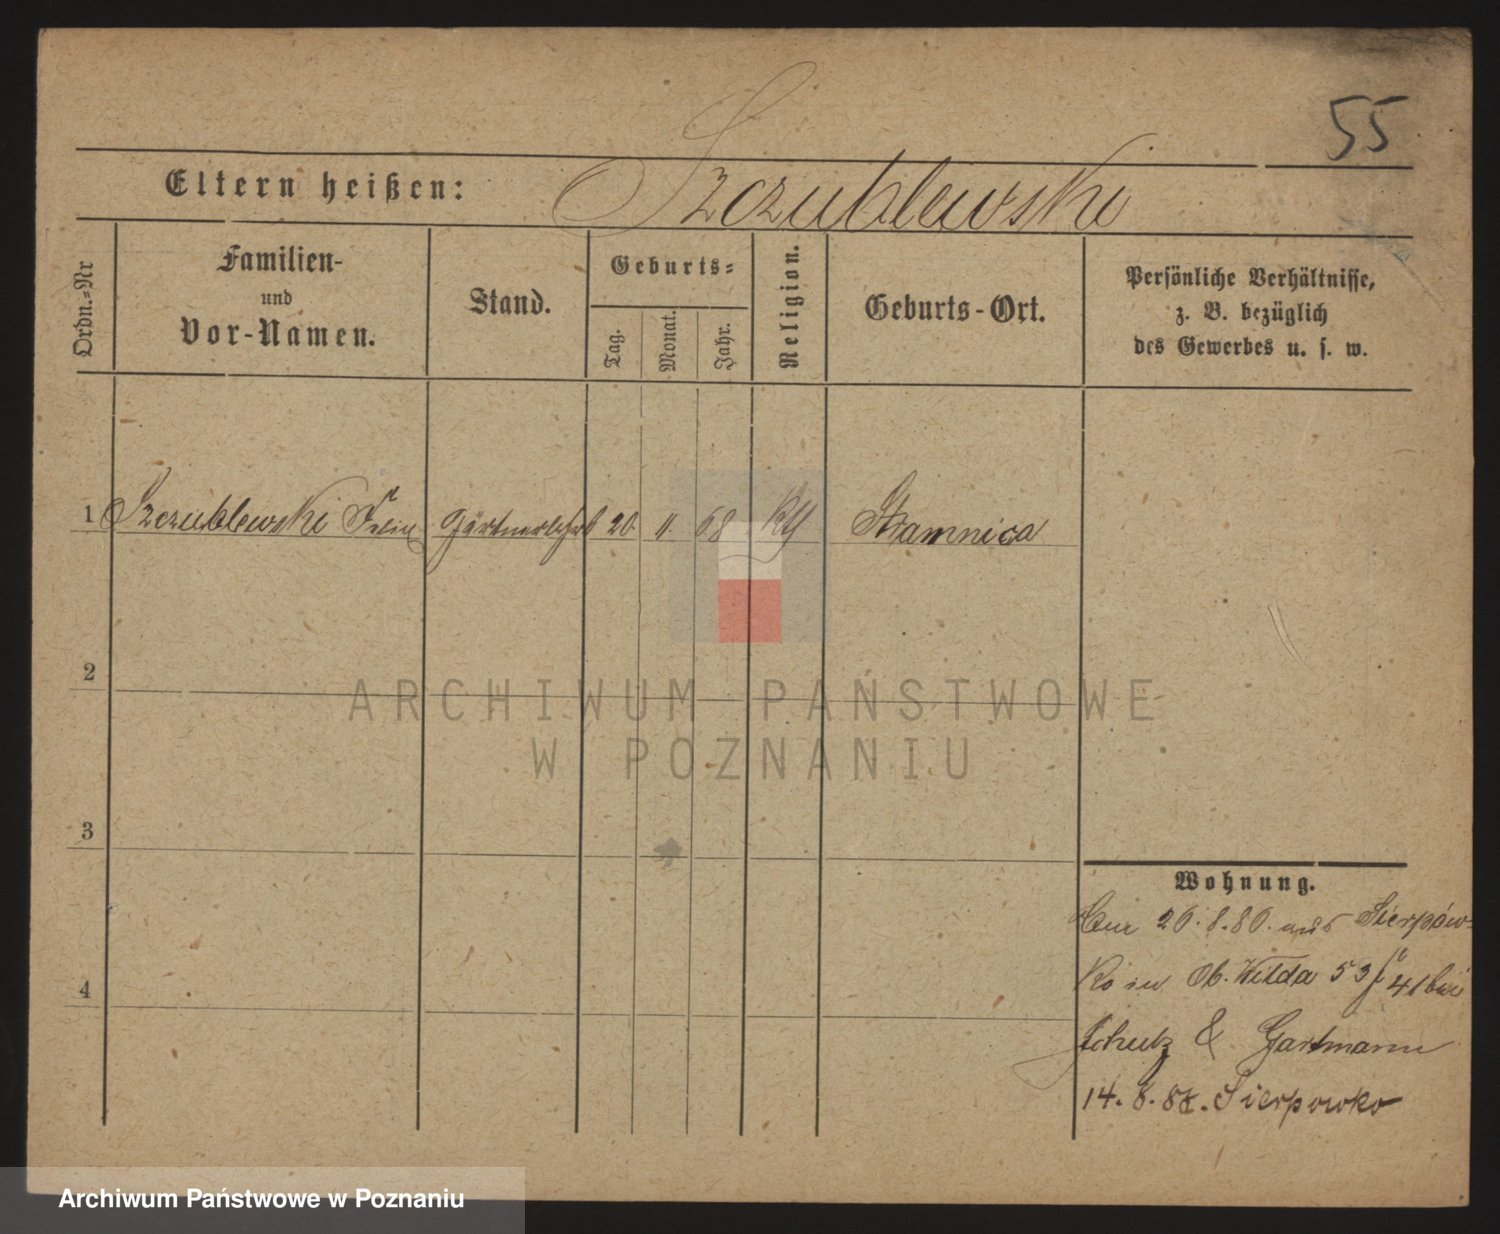 55
Eltern heißen: Szczublewski
Ordn.-Nr
Familien-
und
Vor-Namen.
Stand.
Geburts-
Tag.
Monat.
Jahr.
Religion.
Geburts-Ort.
Persönliche Verhältnisse,
z. B. bezüglich
des Gewerbes u. s. w.
1 Szczublewski Gärtnerlehrl 20. 11. 68 Stramnica
2
3
4
ARCHIWUM PAŃSTWOWE
W POZNANIU
Wohnung.
26.8.86. aus Sierpów-
ko in Ob. Wilda 53 41 bei
Schulz & Gartmann
14. 8. 88. Sierpowko
Archiwum Państwowe w Poznaniu